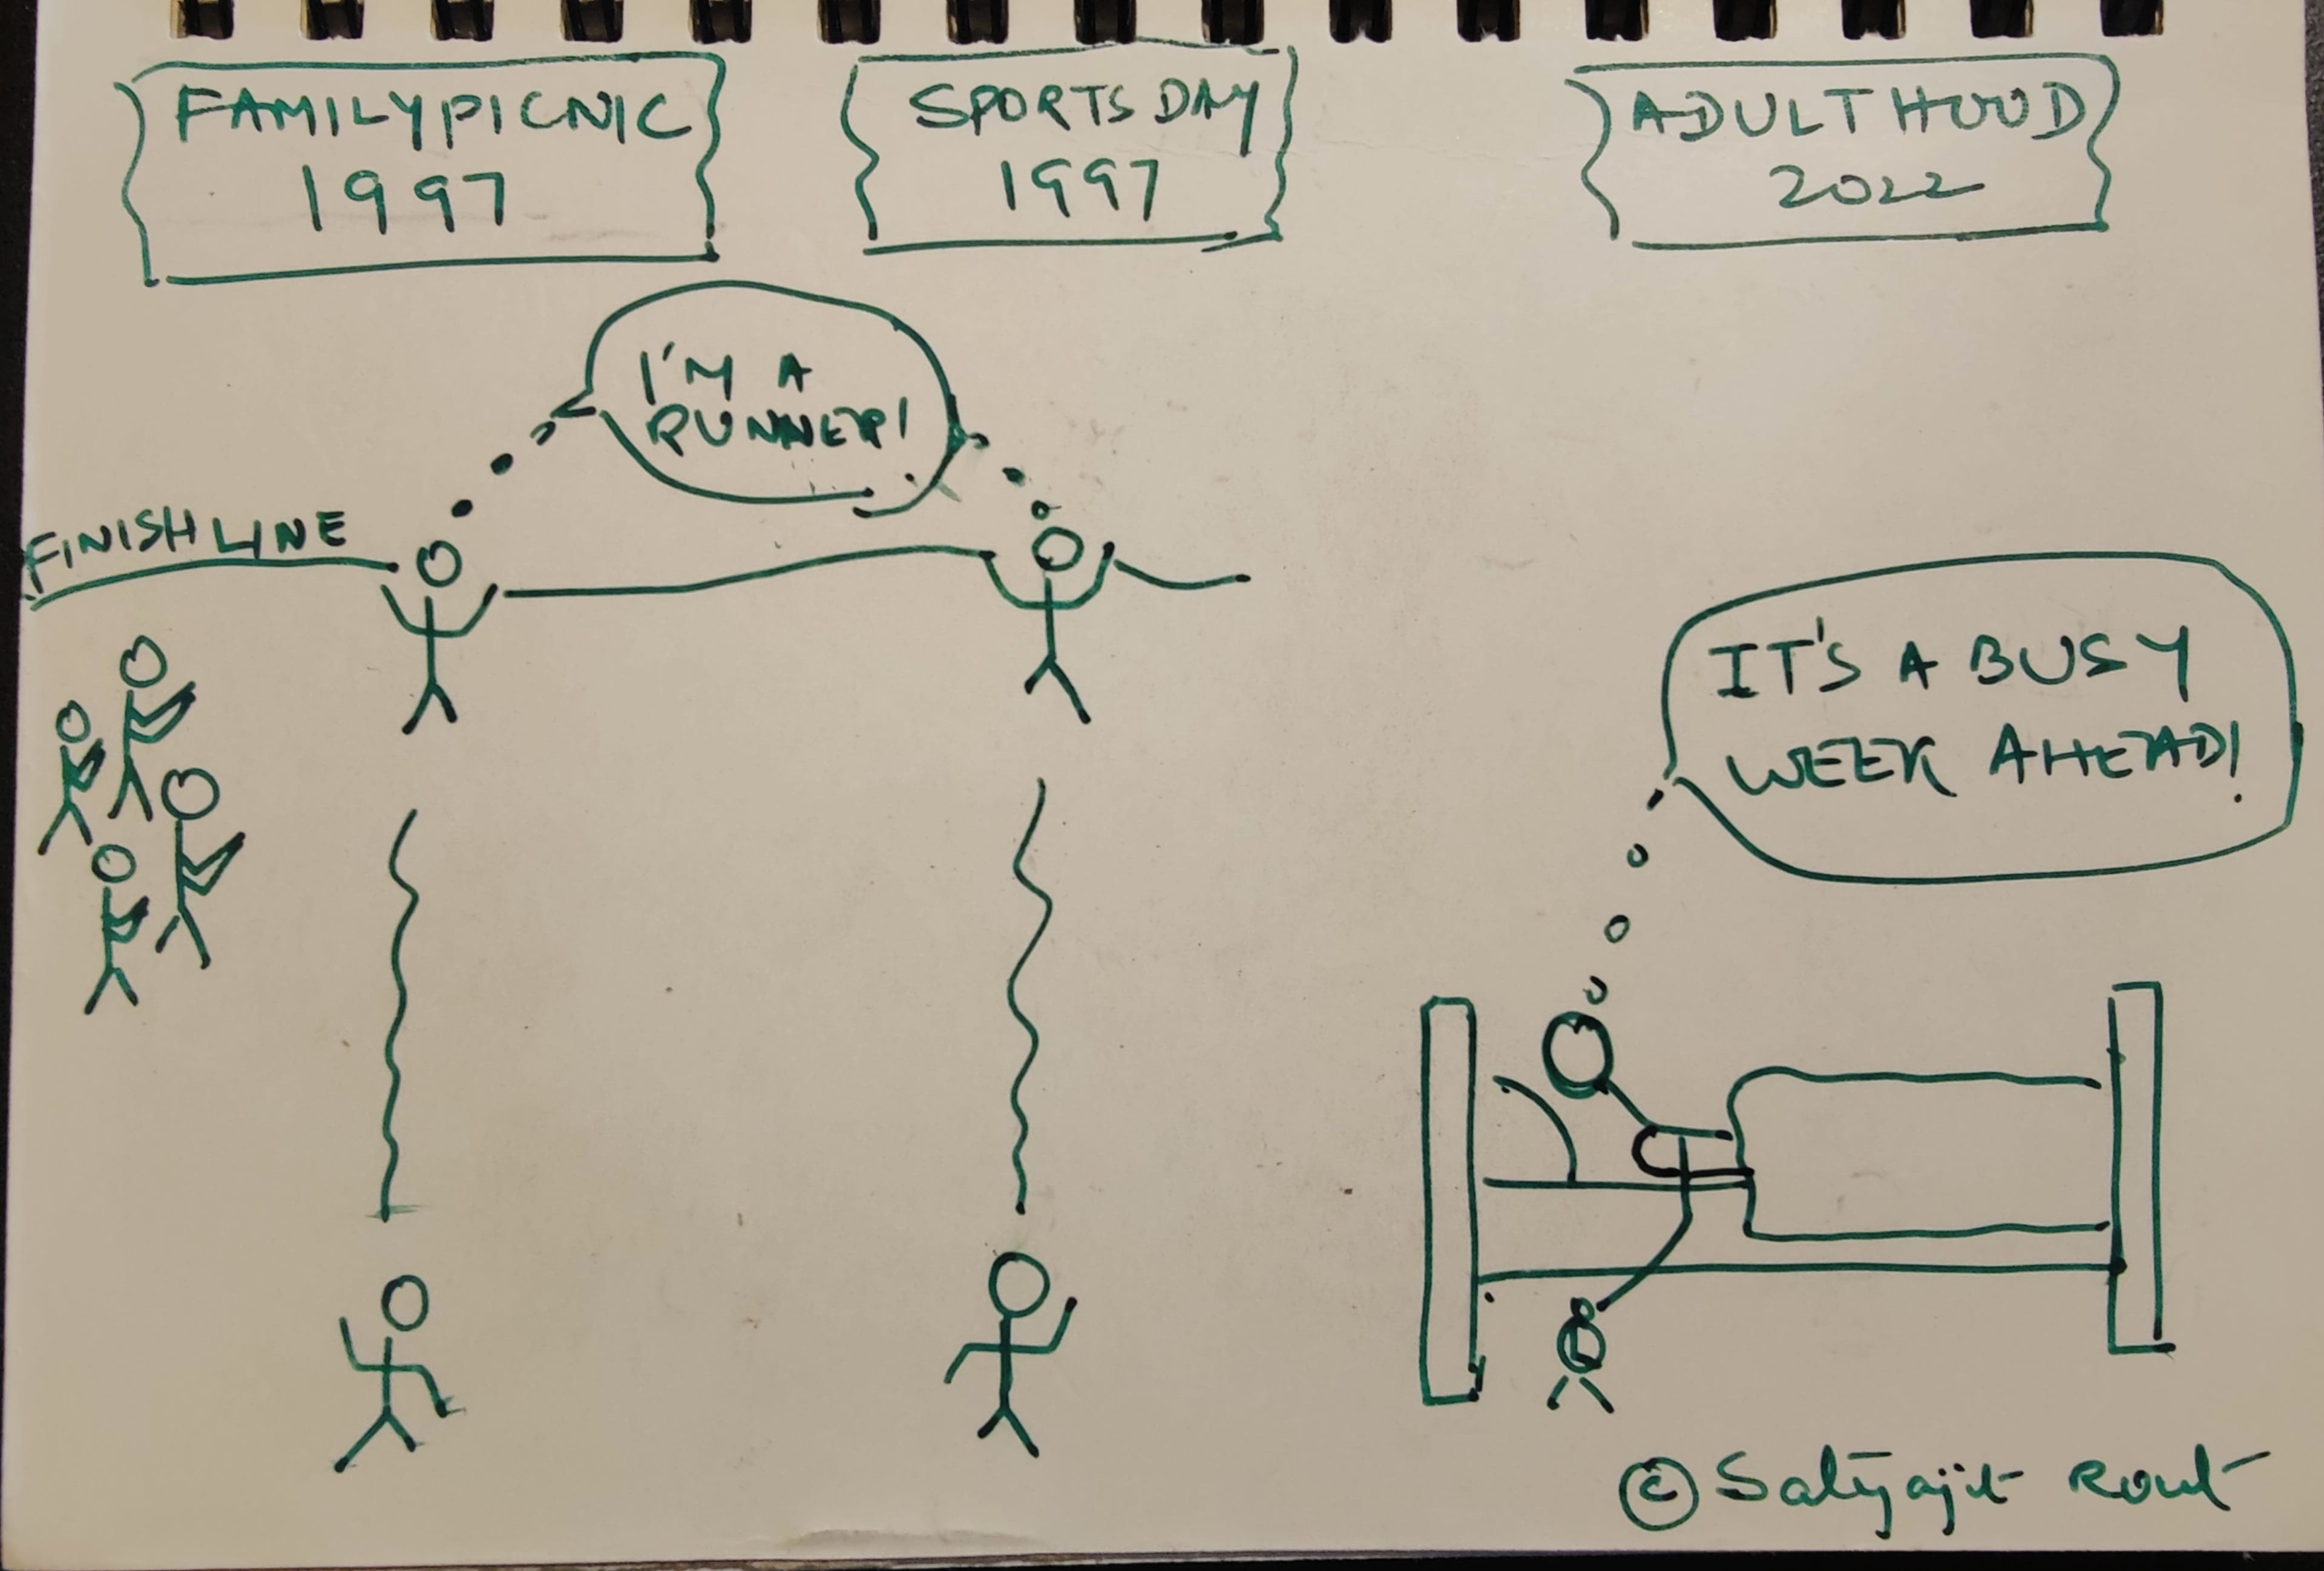 FAMILY PICNIC
1997
SPORTS DAY
1997
ADULT HOOD
2022
I'M A
RUNNER!
FINISH LINE
IT'S A BUSY
WEEK AHEAD!
© Satyajit Rout